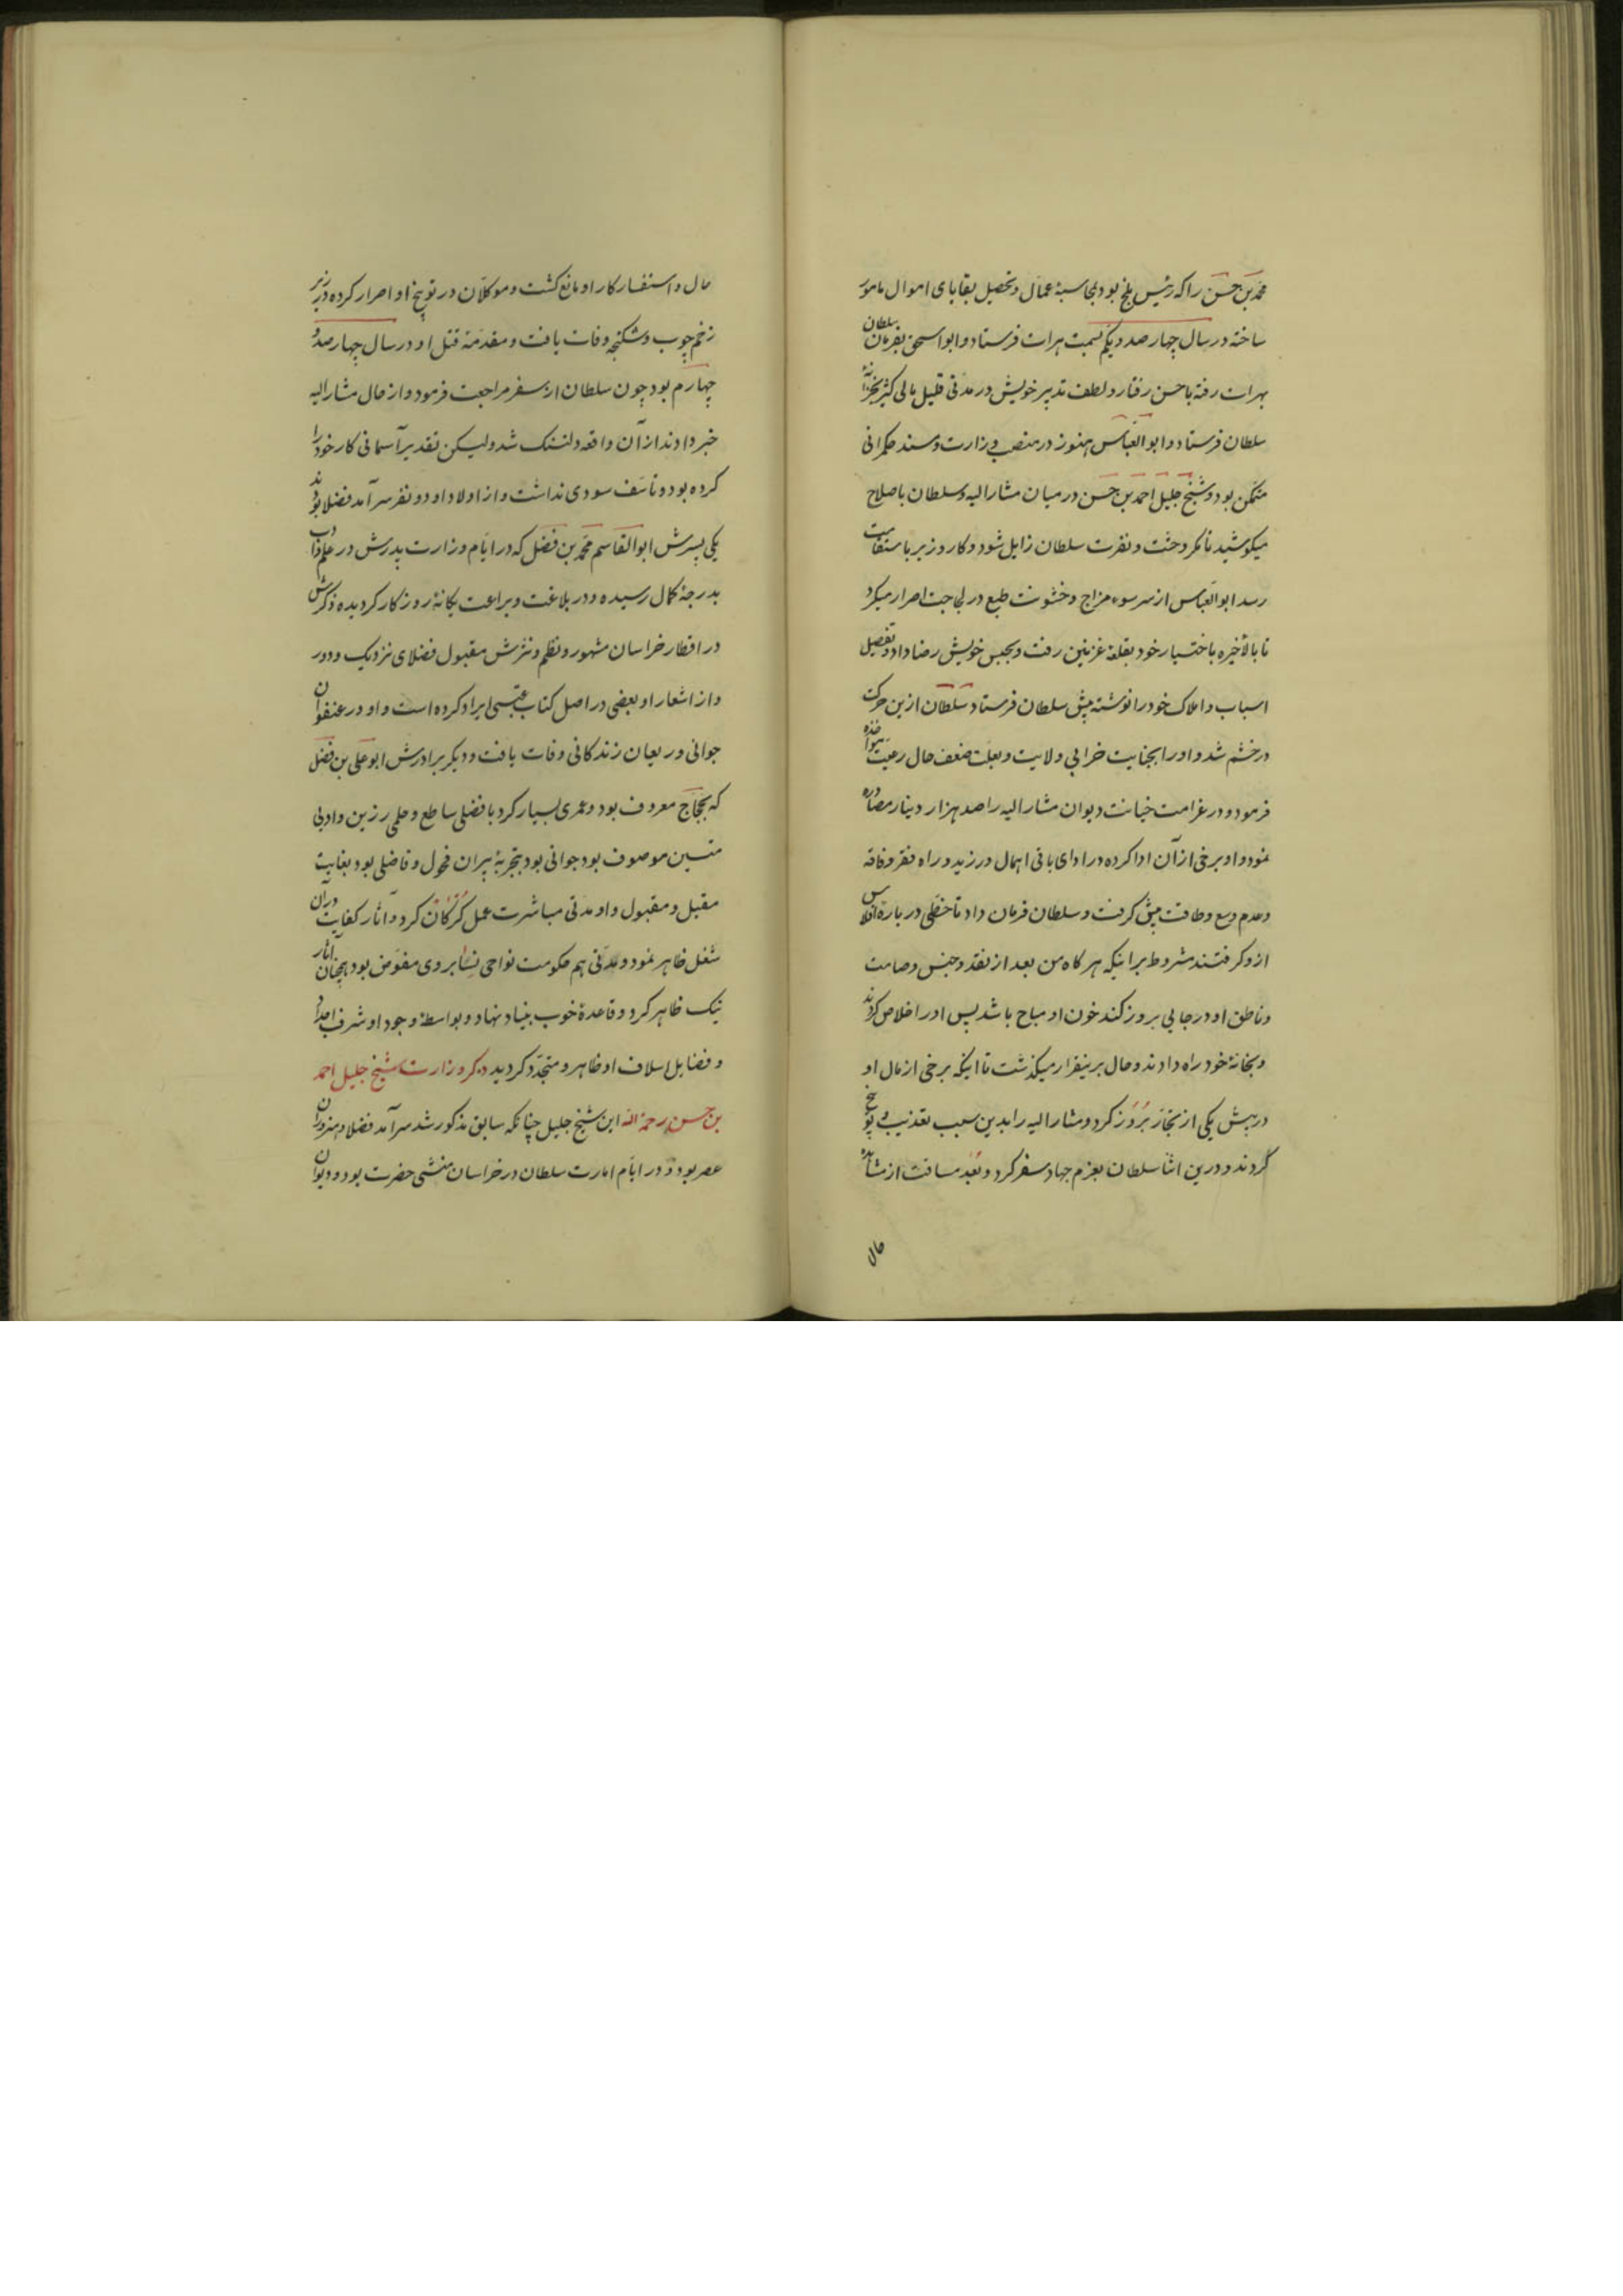 محمد بن حسن را که رئیس بلخ بود بمحاسبهٔ عمال و تحصیل بقایای اموال مامور
ساخته در سال چهار صد و یکم بسمت هرات فرستاد و ابو اسحق بفرمان سلطان
بهرات رفته باحسن رفتار و لطف تدبیر خویش در مدتی قلیل مالی کثیر بخزانه
سلطان فرستاد و ابو العباس هنوز در منصب وزارت و مسند حکمرانی
متمکن بود و شیخ جلیل احمد بن حسن در میان مشار الیه و سلطان باصلاح
میکوشید تا مکر وحشت و نفرت سلطان زایل شود و کار وزیر باستقامت
رسد ابو العباس از سر سوء مزاج و خشونت طبع در لجاجت اصرار میکرد
تا بالأخیره باختیار خود بقلعهٔ غزنین رفت و بحبس خویش رضا داد و تفصیل
اسباب و املاک خود را نوشته پیش سلطان فرستاد سلطان ازین حرکت
درخشم شد و او را بجنایت خرابی ولایت و بعلت ضعف حال رعیت مؤاخذه
فرمود و در غرامت خیانت دیوان مشار الیه را صد هزار دینار مصادره
نمود و او برخی از آن ادا کرده در ادای باقی اهمال ورزید و راه فقر و فاقه
و عدم وسع و طاقت پیش کرفت و سلطان فرمان داد تا خطی در بارهٔ افلاس
ازو کرفتند مشروط براینکه هر کاه من بعد از نقد و جنس و صامت
و ناطق او در جایی بروز کند خون او مباح باشد پس او را خلاص کردند
و بخانهٔ خود راه دادند و حال برینقرار میکذشت تا اینکه برخی از مال او
در پیش یکی از تجار بروز کرد و مشار الیه را بدین سبب تعذیب و توبیخ
کردند و درین اثنا سلطان بعزم جهاد سفر کرد و بعد مسافت از مشاهده
حال
حال و استفسار کار او مانع کشت و موکلان در توبیخ او اصرار کرده در زیر
زخم چوب و شکنجه وفات یافت و مقدمهٔ قتل او در سال چهار صد و
چهارم بود چون سلطان از سفر مراجعت فرمود و از حال مشار الیه
خبر دادند از آن واقعه دلتنک شد ولیکن تقدیر آسمانی کار خود را
کرده بود و تاسف سودی نداشت و از اولاد او دو نفر سرآمد فضلا بودند
یکی پسرش ابو القاسم محمد بن فضل که در ایام وزارت پدرش در علم و ادب
بدرجهٔ کمال رسیده و در بلاغت و براعت یکانهٔ روزکار کردیده ذکرش
در اقطار خراسان مشهور و نظم و نثرش مقبول فضلای نزدیک و دور
و از اشعار او بعضی در اصل کتاب عتبی ایراد کرده است و او در عنفوان
جوانی و ریعان زندکانی وفات یافت و دیکر برادرش ابو علی بن فضل
که بحجاج معروف بود و عمری بسیار کرد با فضلی ساطع و حلمی رزین و ادبی
متین موصوف بود جوانی بود بتجربهٔ پیران فحول و فاضلی بود بغایت
مقبل و مقبول و او مدتی مباشرت عمل کرکان کرد و آثار کفایت در آن
شغل ظاهر نمود و مدتی هم حکومت نواحی نسا بر وی مفوض بود همچنان آثار
نیک ظاهر کرد و قاعدهٔ خوب بنیاد نهاد و بواسطهٔ وجود او شرف اجداد
و فضایل اسلاف او ظاهر و متجدد کردید ذکر وزارت شیخ جلیل احمد
بن حسن رحمه الله این شیخ جلیل چنانکه سابق مذکور شد سرآمد فضلا و هنروران
عصر بود و در ایام امارت سلطان در خراسان منشی حضرت بود و دیوان